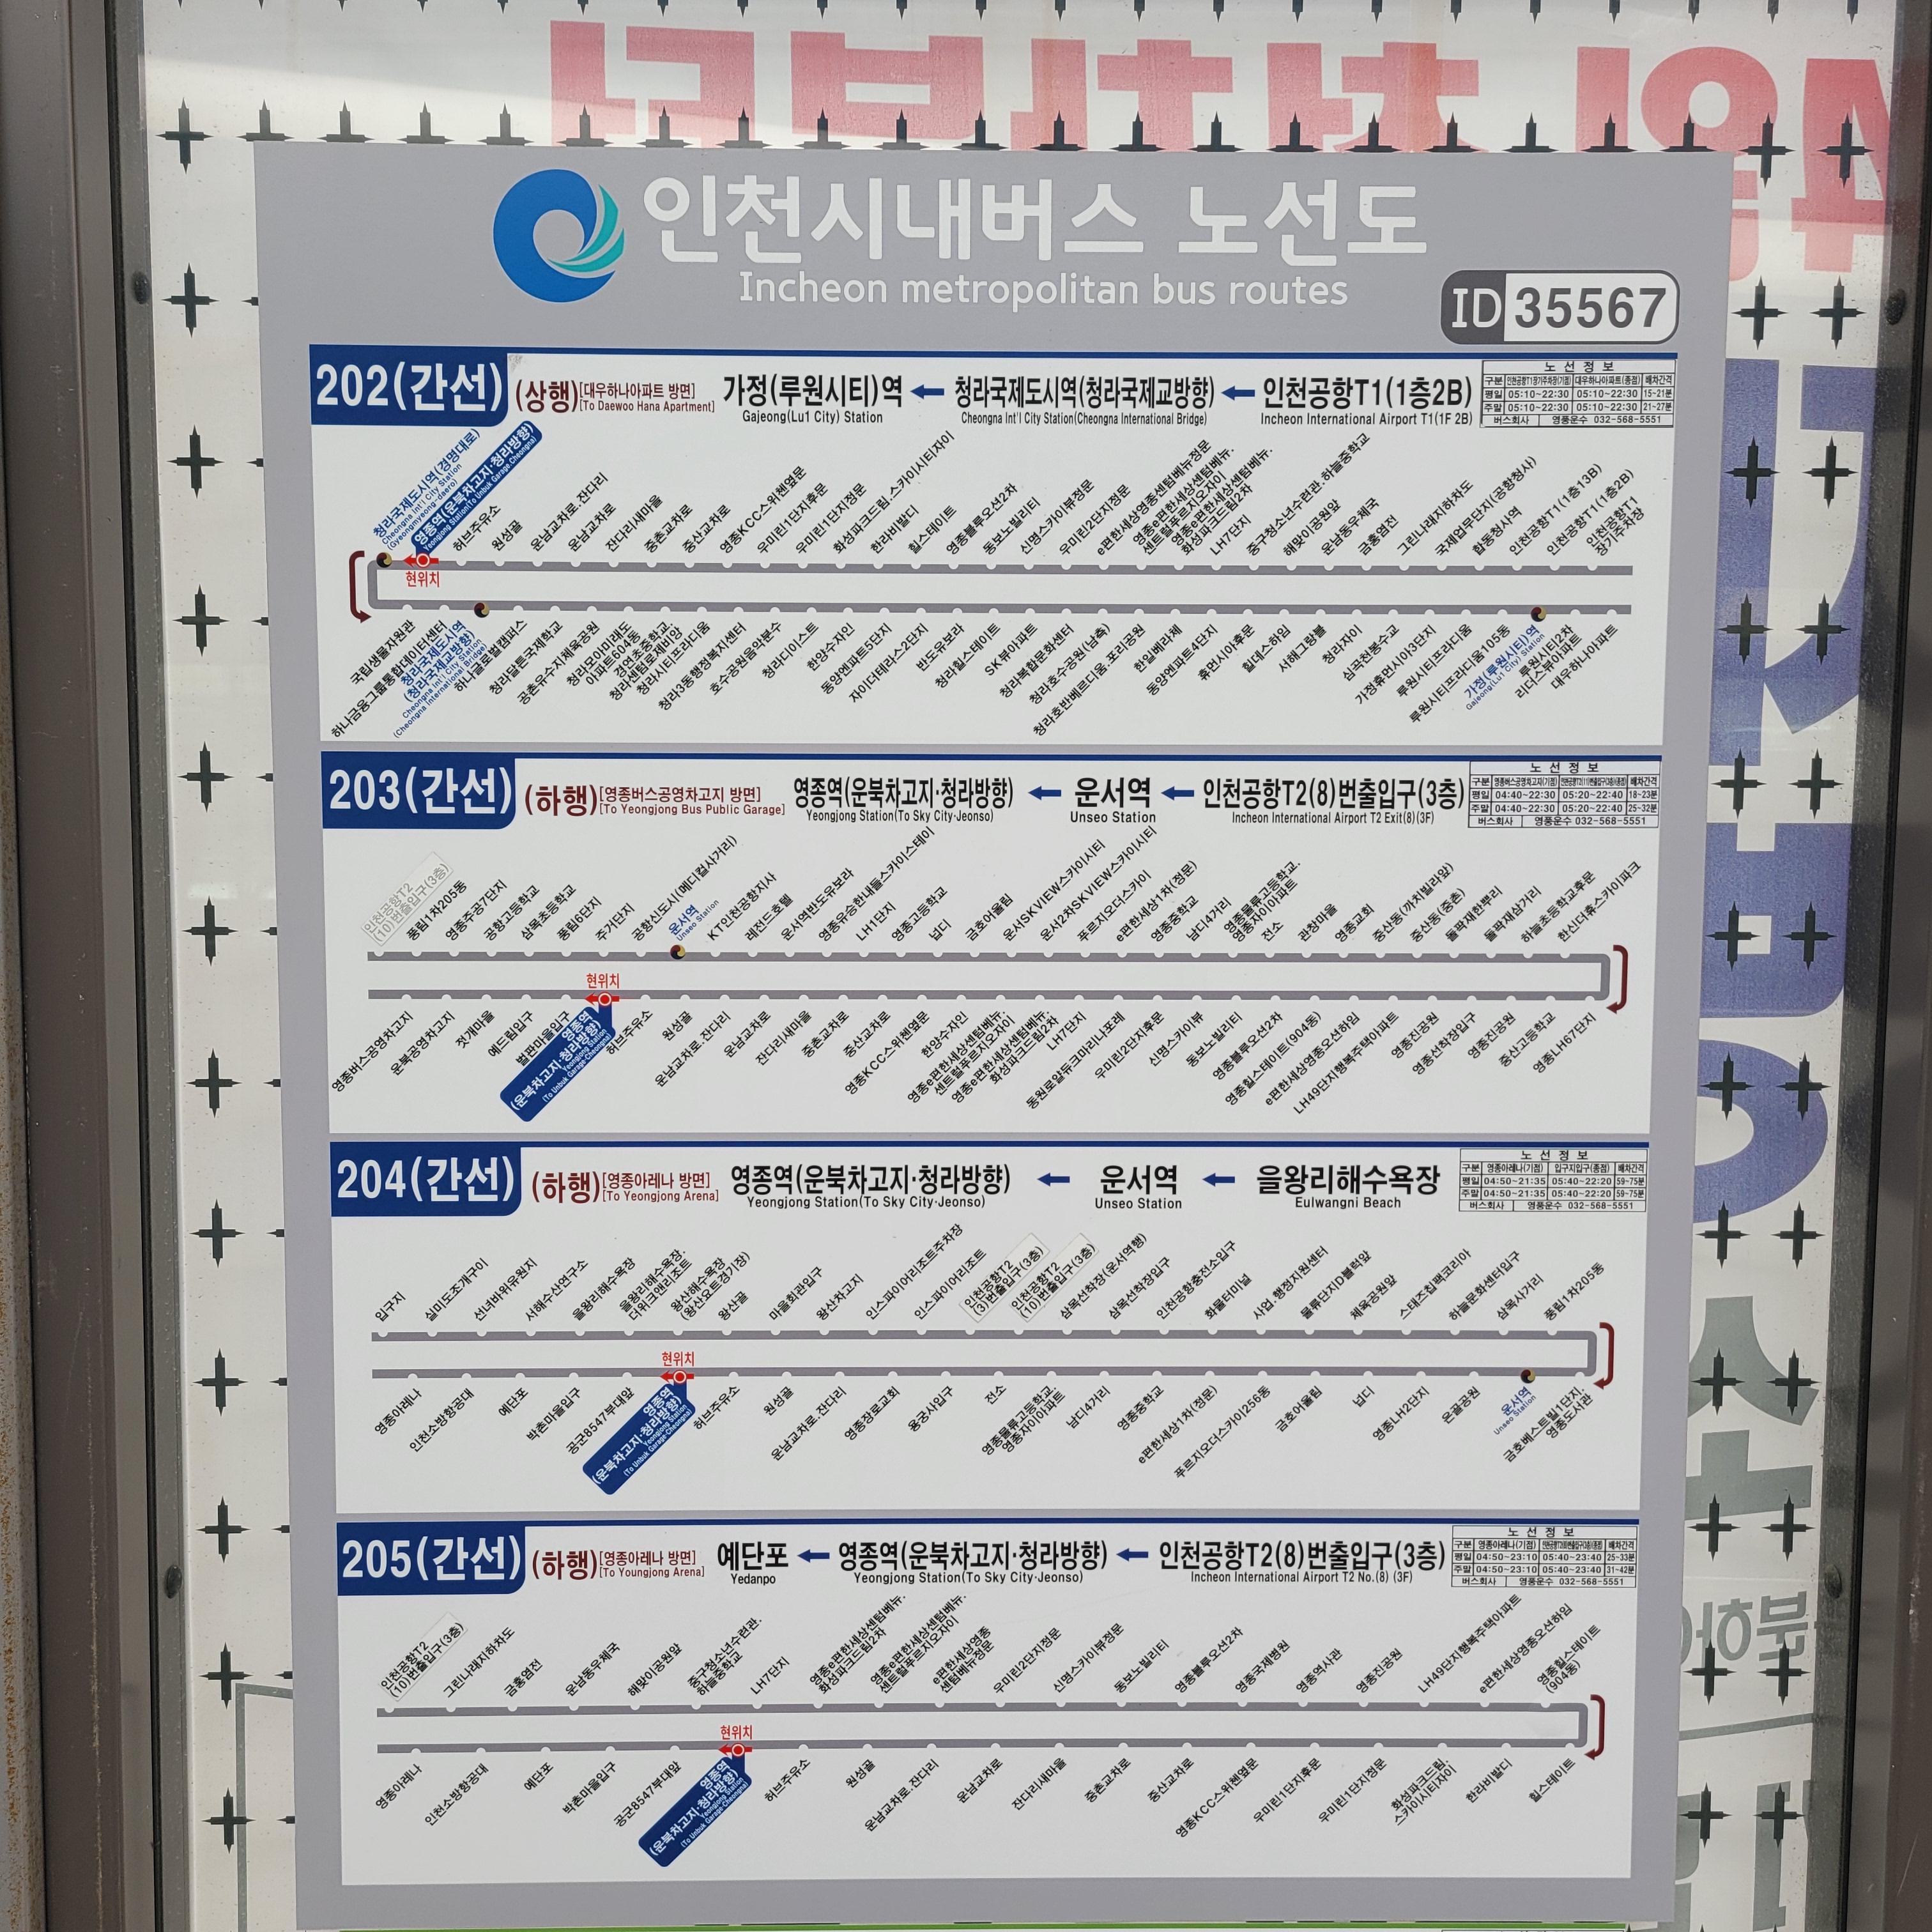 인천시내버스 노선도
Incheon metropolitan bus routes
ID 35567
202(간선)
(상행)[대우하나아파트 방면]
[To Daewoo Hana Apartment]
가정(루원시티)역
Gajeong(Lu1 City) Station
청라국제도시역(청라국제교방향)
Cheongna Int'l City Station(Cheongna International Bridge)
인천공항T1(1층2B)
Incheon International Airport T1(1F 2B)
노선정보
구분 인천공항T1장기주차장(기점) 대우하나아파트(종점) 배차간격
평일 05:10~22:30 05:10~22:30 15~21분
주말 05:10~22:30 05:10~22:30 21~27분
버스회사 영풍운수 032-568-5551
청라국제도시역(경명대로)
Cheongna Int'l City Station
(Gyeongmyeong-daero)
영종역(운북차고지·청라방향)
Yeongjong Station(To Unbuk Garage·Cheongna)
허브주유소
원성골
운남교차로.잔다리
운남교차로
잔다리새마을
중촌교차로
중산교차로
영종KCC스위첸옆문
우미린1단지후문
우미린1단지정문
화성파크드림.스카이시티자이
한라비발디
힐스테이트
영종블루오션2차
동보노빌리티
신명스카이뷰정문
우미린2단지정문
e편한세상영종센텀베뉴정문
영종e편한세상센텀베뉴.
센트럴푸르지오자이
영종e편한세상센텀베뉴.
화성파크드림2차
LH7단지
중구청소년수련관.하늘중학교
해맞이공원앞
운남동우체국
금홍염전
그린나래지하차도
국제업무단지(공항청사)
합동청사역
인천공항T1(1층13B)
인천공항T1(1층2B)
인천공항T1
장기주차장
현위치
국립생물자원관
하나금융그룹통합데이터센터
청라국제도시역
(청라국제교방향)
Cheongna Int'l City Station
(Cheongna International Bridge)
하나글로벌캠퍼스
청라달튼국제학교
공촌유수지체육공원
청라모아미래도
아파트904동
경연초중학교.
청라센텀로제비앙
청라시티프라디움
청라3동행정복지센터
호수공원음악분수
청라디이스트
한양수자인
동양엔파트5단지
자이더테라스2단지
반도유보라
청라힐스테이트
SK뷰아파트
청라복합문화센터
청라호수공원(남측)
청라호반베르디움.포리공원
한일베라체
동양엔파트4단지
휴먼시아후문
힐데스하임
서해그랑블
청라자이
심곡천봉수교
가정휴먼시아3단지
루원시티프라디움
루원시티프라디움105동
가정(루원시티)역
Gajeong(Lu1 City) Station
루원시티2차
리더스뷰아파트
대우하나아파트
203(간선)
(하행)[영종버스공영차고지 방면]
[To Yeongjong Bus Public Garage]
영종역(운북차고지·청라방향)
Yeongjong Station(To Sky City·Jeonso)
운서역
Unseo Station
인천공항T2(8)번출입구(3층)
Incheon International Airport T2 Exit(8)(3F)
노선정보
구분 영종버스공영차고지(기점) 배차간격
평일 04:40~22:30 05:20~22:40 18~23분
주말 04:40~22:30 05:20~22:40 25~32분
버스회사 영풍운수 032-568-5551
인천공항T2
(10)번출입구(3층)
풍림1차205동
영종주공7단지
공항고등학교
삼목초등학교
풍림6단지
주거단지
공항신도시(메디컬사거리)
운서역
Unseo Station
KT인천공항지사
레전드호텔
운서역반도유보라
영종유승한내들스카이스테이
LH1단지
영종고등학교
넙디
금호어울림
운서SKVIEW스카이시티
운서2차SKVIEW스카이시티
푸르지오더스카이
e편한세상1차(정문)
영종중학교
남디4거리
영종물류고등학교.
영종자이아파트
전소
관창마을
영종교회
중산동(까치빌라앞)
중산동(중촌)
돌팍재한뿌리
돌팍재삼거리
하늘초등학교후문
한신더휴스카이파크
현위치
영종버스공영차고지
운북공영차고지
젓개마을
예드림입구
벌판마을입구
영종역
(운북차고지·청라방향)
Yeongjong Station
(To Unbuk Garage·Cheongna)
허브주유소
원성골
운남교차로.잔다리
운남교차로
잔다리새마을
중촌교차로
중산교차로
영종KCC스위첸옆문
한양수자인
영종e편한세상센텀베뉴.
센트럴푸르지오자이
영종e편한세상센텀베뉴.
화성파크드림2차
LH7단지
동원로얄듀크마리나포레
우미린2단지후문
신명스카이뷰
동보노빌리티
영종블루오션2차
영종힐스테이트(904동)
e편한세상영종오션하임
LH49단지행복주택아파트
영종진공원
영종선착장입구
영종진공원
중산고등학교
영종LH6단지
204(간선)
(하행)[영종아레나 방면]
[To Yeongjong Arena]
영종역(운북차고지·청라방향)
Yeongjong Station(To Sky City·Jeonso)
운서역
Unseo Station
을왕리해수욕장
Eulwangni Beach
노선정보
구분 영종아레나(기점) 입구지입구(종점) 배차간격
평일 04:50~21:35 05:40~22:20 59~75분
주말 04:50~21:35 05:40~22:20 59~75분
버스회사 영풍운수 032-568-5551
입구지
실미도조개구이
선녀바위유원지
서해수산연구소
을왕리해수욕장
을왕리해수욕장.
더위크앤리조트
왕산해수욕장
(왕산오트경기장)
왕산골
마을회관입구
왕산차고지
인스파이어리조트주차장
인스파이어리조트
인천공항T2
(3)번출입구(3층)
인천공항T2
(10)번출입구(3층)
삼목선착장(운서역행)
삼목선착장입구
인천공항충전소입구
화물터미널
사업.행정지원센터
물류단지D블럭앞
체육공원앞
스태츠칩팩코리아
하늘문화센터입구
삼목사거리
풍림1차205동
현위치
영종아레나
인천소방항공대
예단포
박촌마을입구
공군8547부대앞
영종역
(운북차고지·청라방향)
Yeongjong Station
(To Unbuk Garage·Cheongna)
허브주유소
원성골
운남교차로.잔다리
영종장로교회
용궁사입구
전소
영종물류고등학교.
영종자이아파트
남디4거리
영종중학교
e편한세상1차(정문)
푸르지오더스카이256동
금호어울림
넙디
영종LH2단지
은골공원
운서역
Unseo Station
금호베스트빌1단지.
영종도서관
205(간선)
(하행)[영종아레나 방면]
[To Youngjong Arena]
예단포
Yedanpo
영종역(운북차고지·청라방향)
Yeongjong Station(To Sky City·Jeonso)
인천공항T2(8)번출입구(3층)
Incheon International Airport T2 No.(8) (3F)
노선정보
구분 영종아레나(기점) 배차간격
평일 04:50~23:10 05:40~23:40 25~33분
주말 04:50~23:10 05:40~23:40 31~42분
버스회사 영풍운수 032-568-5551
인천공항T2
(10)번출입구(3층)
그린나래지하차도
금홍염전
운남동우체국
해맞이공원앞
중구청소년수련관.
하늘중학교
LH7단지
영종e편한세상센텀베뉴.
화성파크드림2차
영종e편한세상센텀베뉴.
센트럴푸르지오자이
e편한세상영종
센텀베뉴정문
우미린2단지정문
신명스카이뷰정문
동보노빌리티
영종블루오션2차
영종국제병원
영종역사관
영종진공원
LH49단지행복주택아파트
e편한세상영종오션하임
영종힐스테이트
(904동)
현위치
영종아레나
인천소방항공대
예단포
박촌마을입구
공군8547부대앞
영종역
(운북차고지·청라방향)
Yeongjong Station
(To Unbuk Garage·Cheongna)
허브주유소
원성골
운남교차로.잔다리
운남교차로
잔다리새마을
중촌교차로
중산교차로
영종KCC스위첸옆문
우미린1단지후문
우미린1단지정문
화성파크드림.
스카이시티자이
한라비발디
힐스테이트